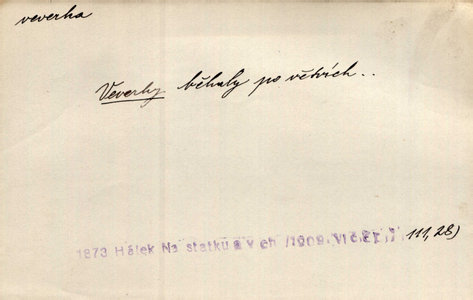 veverka
Veverky běhaly po větvích..
1873 Hálek Na statku a v ch /1909 111,28)